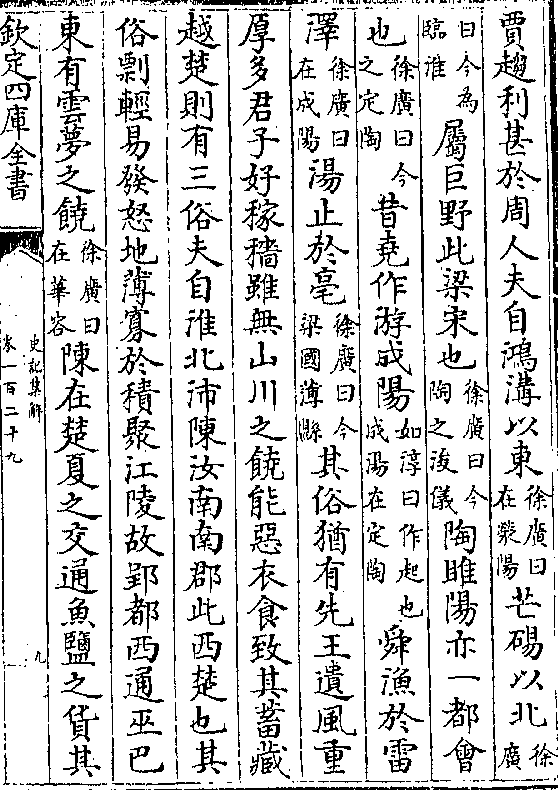 賈趨利甚於周人夫自鴻溝以東徐廣曰在滎陽芒碭以北徐廣
曰今為臨淮屬巨野此梁宋也徐廣曰今陶之浚儀陶睢陽亦一都會
也徐廣曰今之定陶昔堯作游成陽如淳曰作起也成湯在定陶舜漁於雷
澤徐廣曰在成陽湯止於亳徐廣曰今梁國薄縣其俗猶有先王遺風重
厚多君子好稼穡雖無山川之饒能惡衣食致其蓄藏
越楚則有三俗夫自淮北沛陳汝南南郡此西楚也其
俗剽輕易發怒地薄寡於積聚江陵故郢都西通巫巴
東有雲夢之饒徐廣曰在華容陳在楚夏之交通魚鹽之貨其
欽定四庫全書
史記集解
卷一百二十九
九